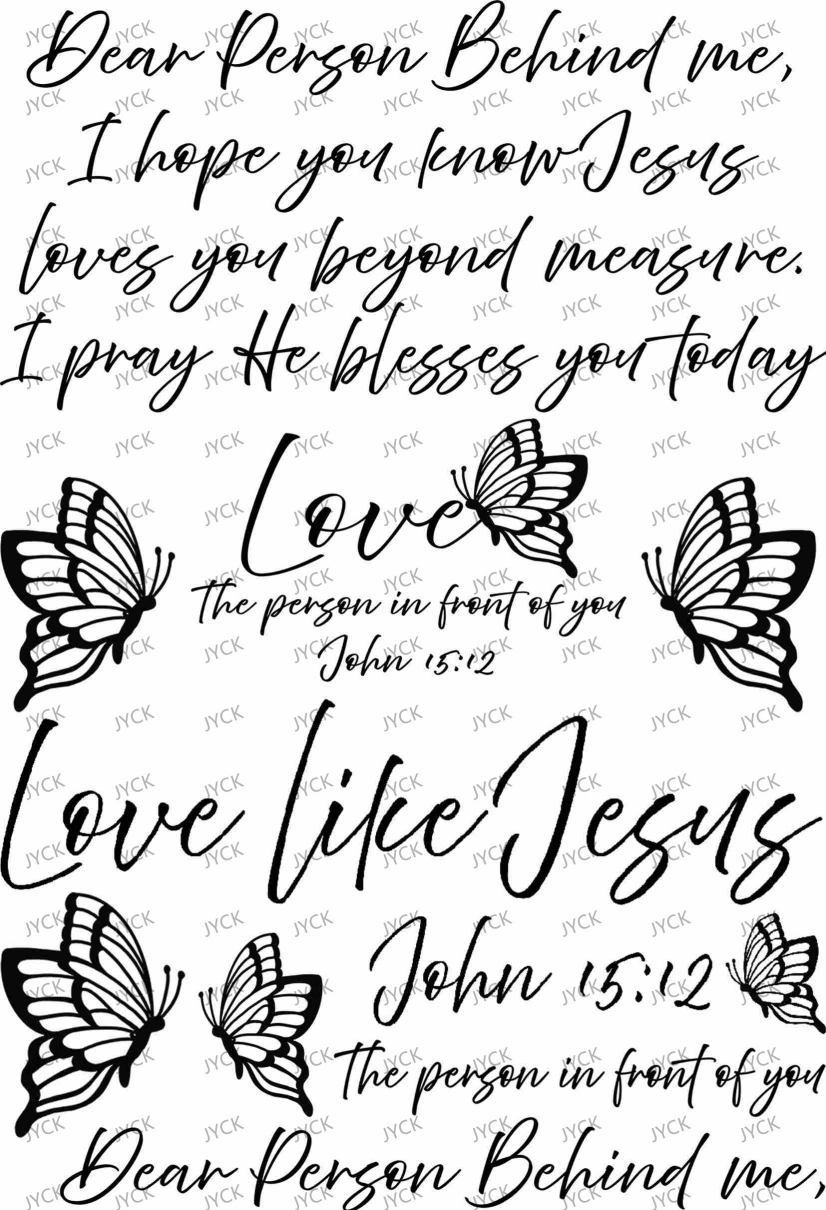 Dear Person Behind me,
I hope you know Jesus
loves you beyond measure.
I pray He blesses you today
Love
The person in front of you
John 15:12
Love like Jesus
John 15:12
The person in front of you
Dear Person Behind me,
JYCK